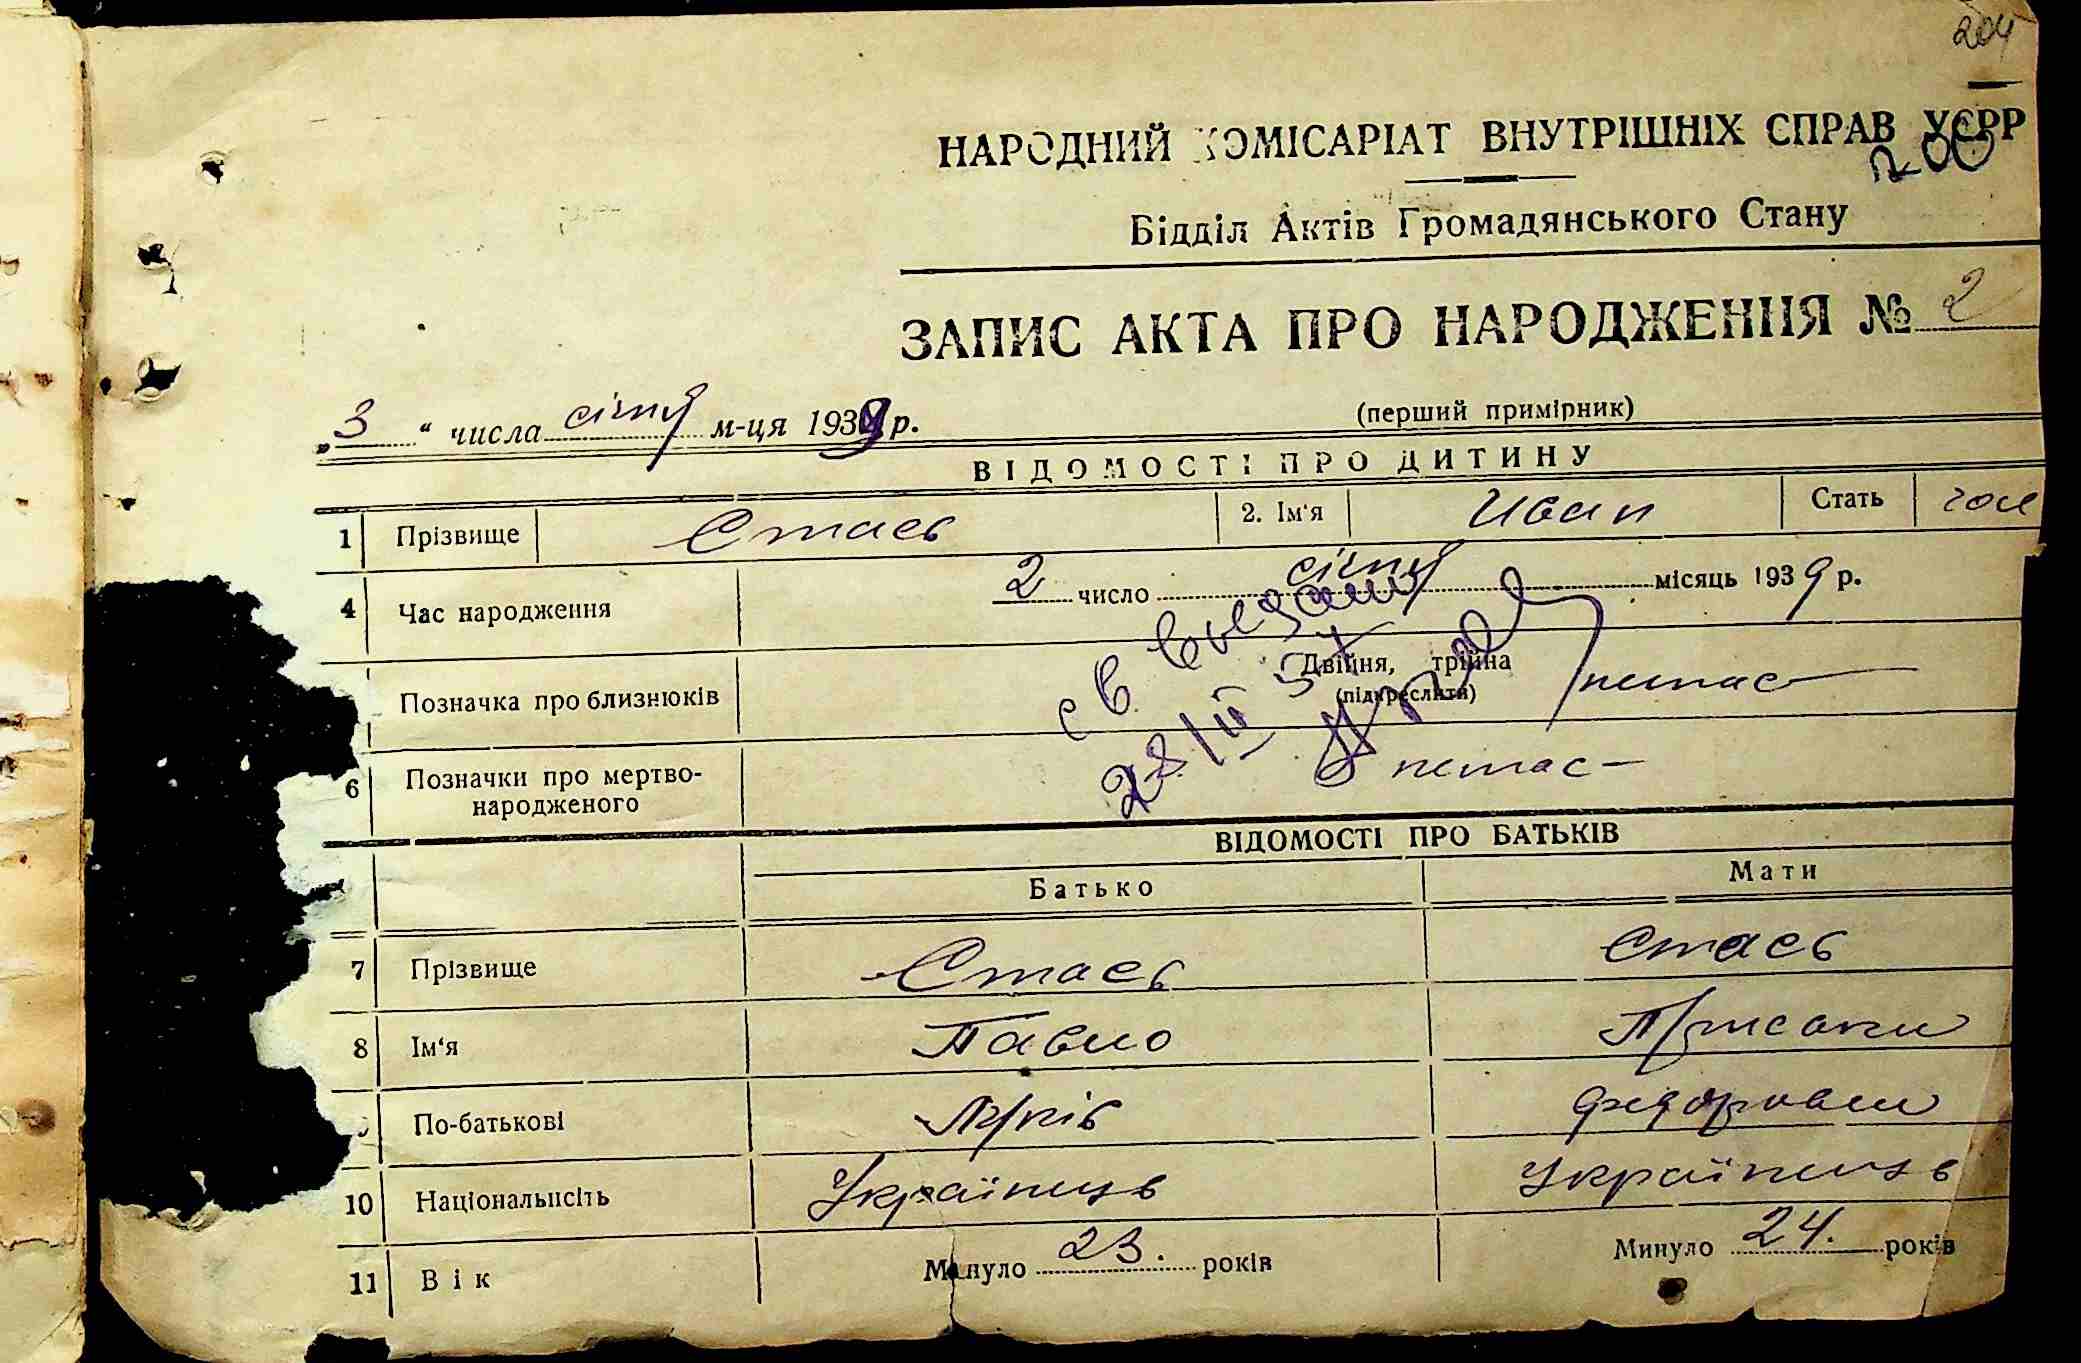 204
НАРОДНИЙ КОМІСАРІАТ ВНУТРІШНІХ СПРАВ УСРР
200
Відділ Актів Громадянського Стану
ЗАПИС АКТА ПРО НАРОДЖЕННЯ № 2
„3“ числа січня м-ця 1939 р.
(перший примірник)
ВІДОМОСТІ ПРО ДИТИНУ
1 Прізвище Стась 2. Ім'я Иван Стать чол
4 Час народження 2 число січня місяць 1939 р.
Позначка про близнюків Двійня, трійна немає
(підкреслити)
св выдано
28/III 57
6 Позначки про мертво- немає
народженого
ВІДОМОСТІ ПРО БАТЬКІВ
Батько Мати
7 Прізвище Стась Стась
8 Ім'я Павло
По-батькові Федоровни
10 Національнсіть Українець Українець
11 Вік Минуло 23. років Минуло 24. років